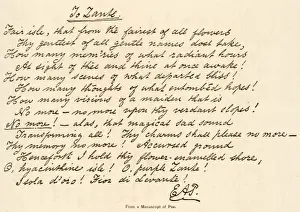 To Zante.
Fair isle, that from the fairest of all flowers
Thy gentlest of all gentle names dost take,
How many mem'ries of what radiant hours
At sight of thee and thine at once awake!
How many scenes of what departed bliss!
How many thoughts of what entombéd hopes!
How many visions of a maiden that is
No more — no more upon thy verdant slopes!
No more! — alas, that magical sad sound
Transforming all! Thy charms shall please no more —
Thy memory no more! Accurséd ground
Henceforth I hold thy flower-enamelled shore,
O, hyacinthine isle! O, purple Zante!
Isola d'oro! Fior di Levante!
E.A.P.
From a Manuscript of Poe.